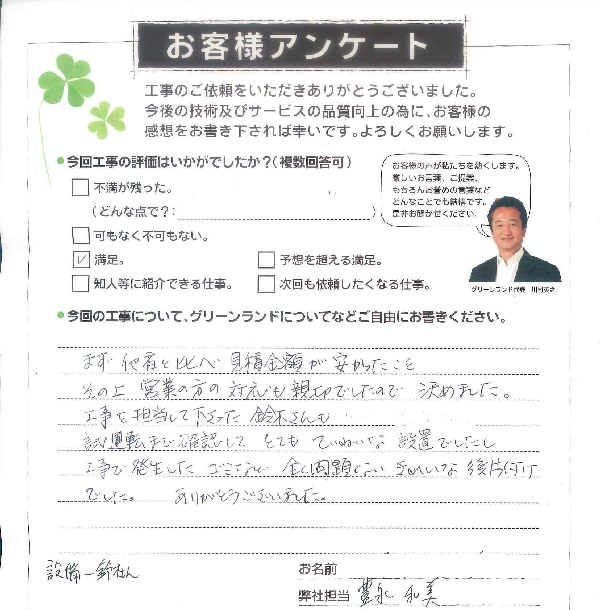 お客様アンケート
工事のご依頼をいただきありがとうございました。
今後の技術及びサービスの品質向上の為に、お客様の
感想をお書き下されば幸いです。よろしくお願いします。
●今回工事の評価はいかがでしたか？(複数回答可)
お客様の声が私たちを熱くします。
厳しいお言葉、ご提案、
もちろんお誉めの言葉など
どんなことでも結構です。
是非お聞かせください。
不満が残った。
(どんな点で？: )
可もなく不可もない。
✓ 満足。
予想を超える満足。
知人等に紹介できる仕事。
次回も依頼したくなる仕事。
グリーンランド代表
●今回の工事について、グリーンランドについてなどご自由にお書きください。
まず 他者と比べ 見積金額が 安かったこと
その上 営業の方の 対応も 親切でしたので 決めました。
工事を担当して下さった 鈴木さんも
試運転まで確認して とても ていねいな 設置でしたし
工事で発生した ゴミなども 全く問題くない きれいな 後片付け
でした。 ありがとうございました。
設備→鈴木さん
お名前
弊社担当 豊永 和美